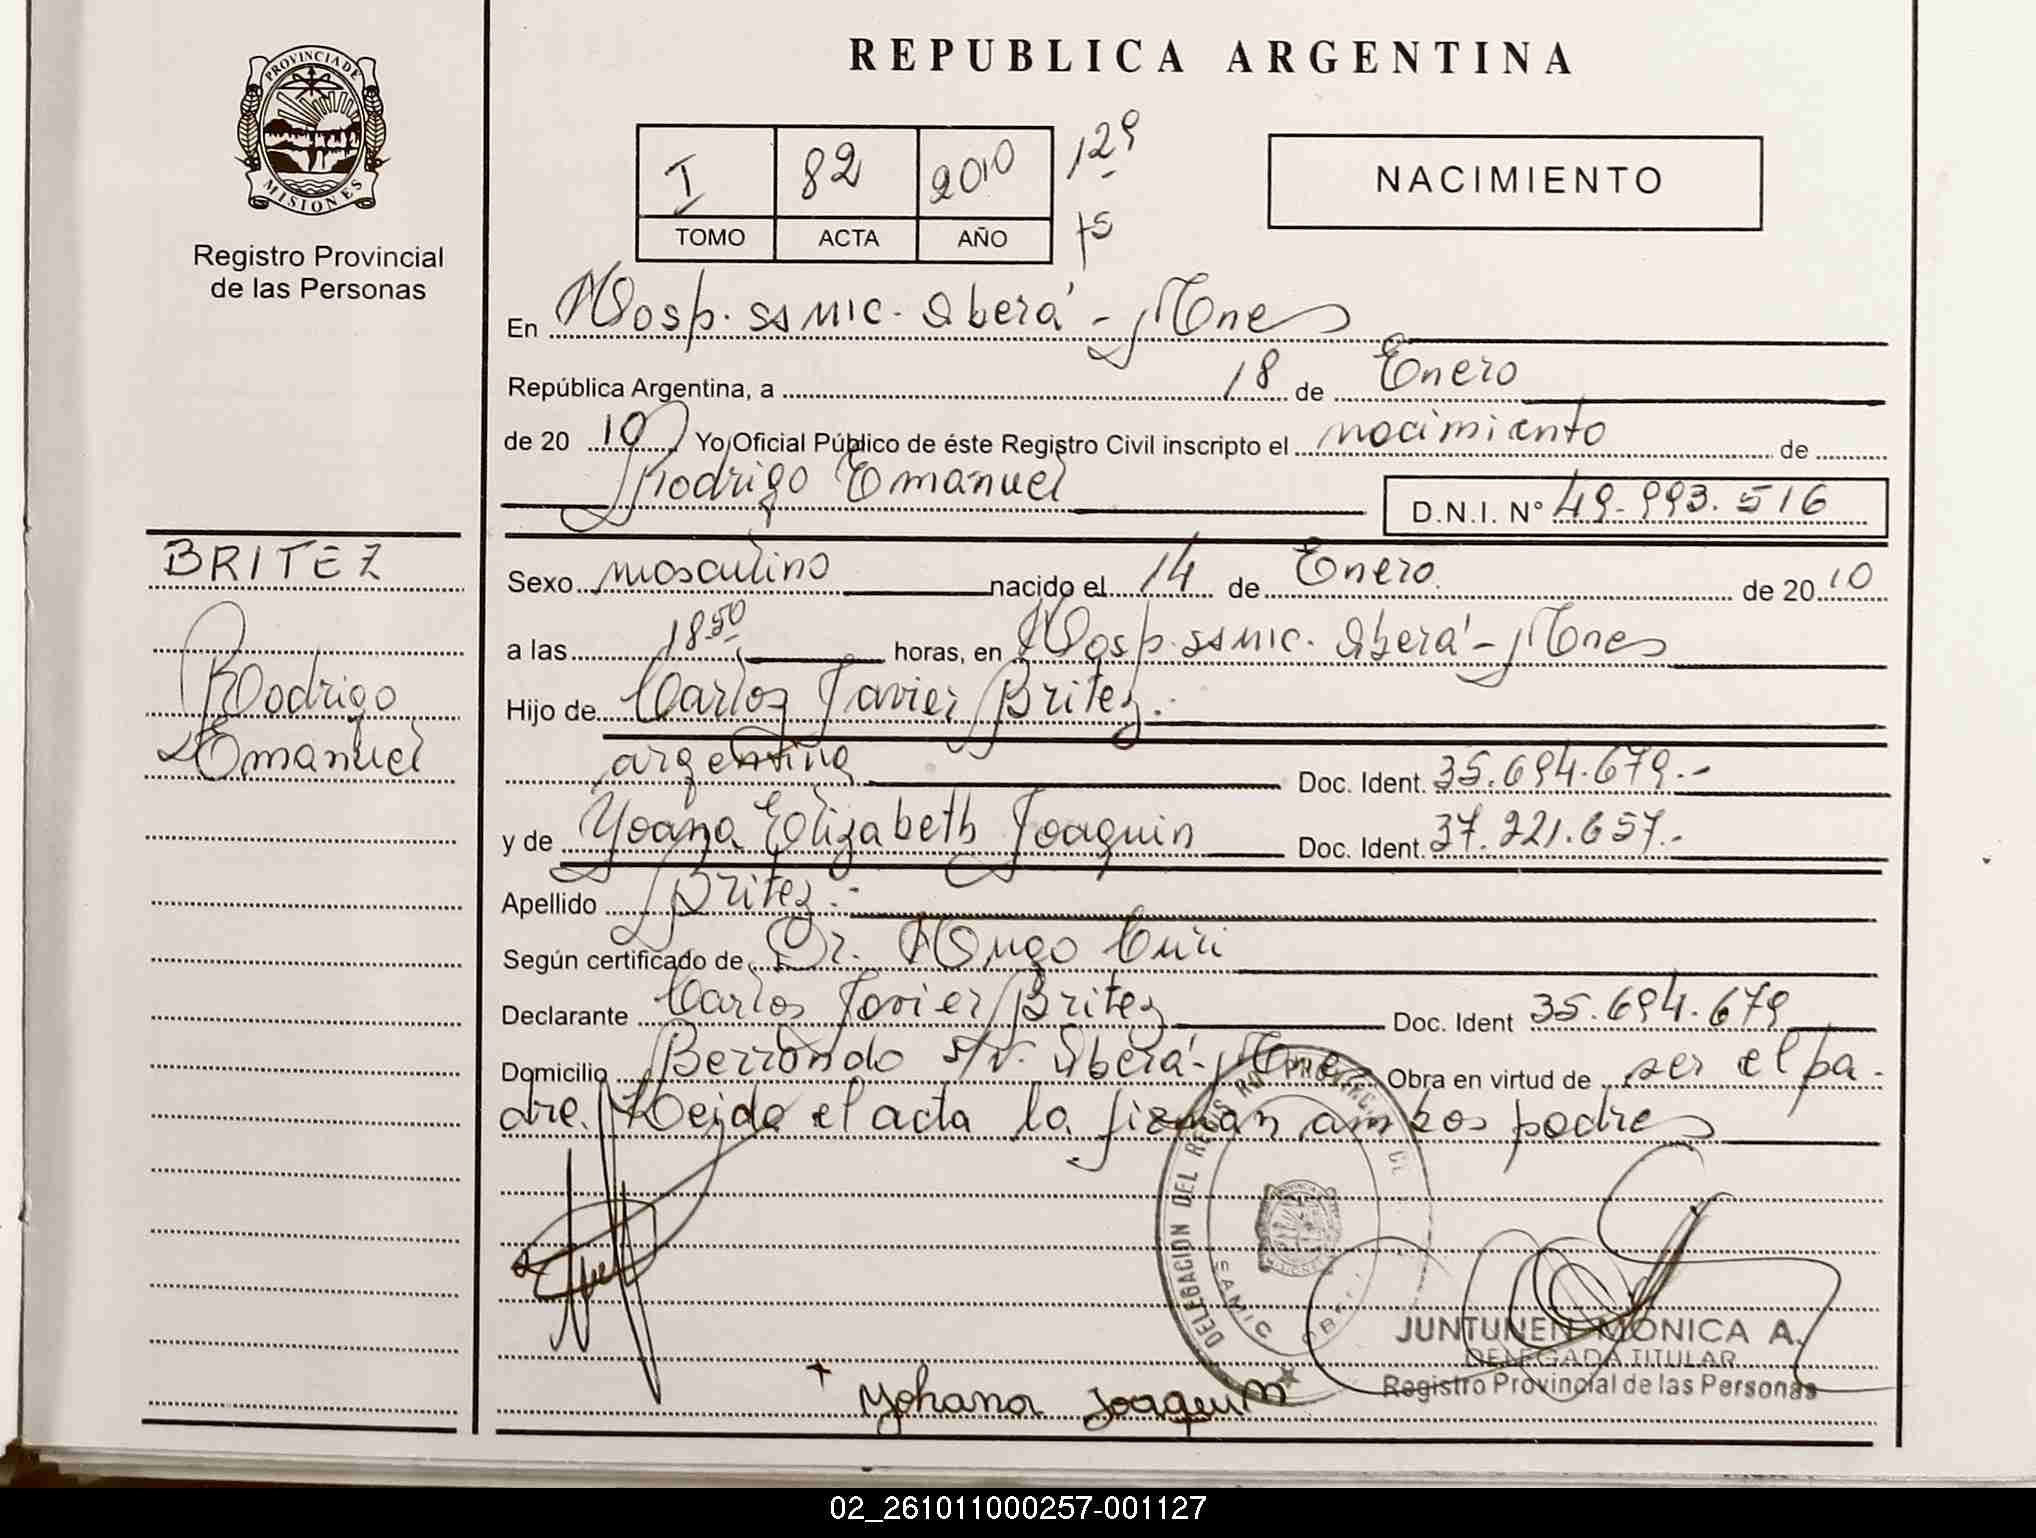 REPUBLICA ARGENTINA
PROVINCIA DE
MISIONES
Registro Provincial
de las Personas
I 82 2010 129
TOMO ACTA AÑO
NACIMIENTO
En Hosp. SAMIC. Oberá - Mnes
República Argentina, a 18 de Enero
de 20 10 Yo Oficial Público de éste Registro Civil inscripto el nacimiento de
Rodrigo Emanuel D.N.I. N° 49.993.516
BRITEZ
Rodrigo
Emanuel
Sexo masculino nacido el 14 de Enero de 20 10
a las 18 50 horas, en Hosp. SAMIC. Oberá - Mnes
Hijo de Carlos Javier Britez.
argentina Doc. Ident. 35.694.679.-
y de Yoana Elizabeth Joaquin Doc. Ident. 37.221.657.-
Apellido Britez.-
Según certificado de Dr. Hugo Curi
Declarante Carlos Javier Britez Doc. Ident 35.694.679
Domicilio Berrondo s/n. Oberá - Mnes Obra en virtud de ser el pa-
dre. Leida el acta la firman ambos padres
DELEGACION DEL REGISTRO PROVINCIAL DE
SAMIC OBERA
JUNTUNEN MONICA A.
DELEGADA TITULAR
Registro Provincial de las Personas
Yohana Joaquin
02_261011000257-001127